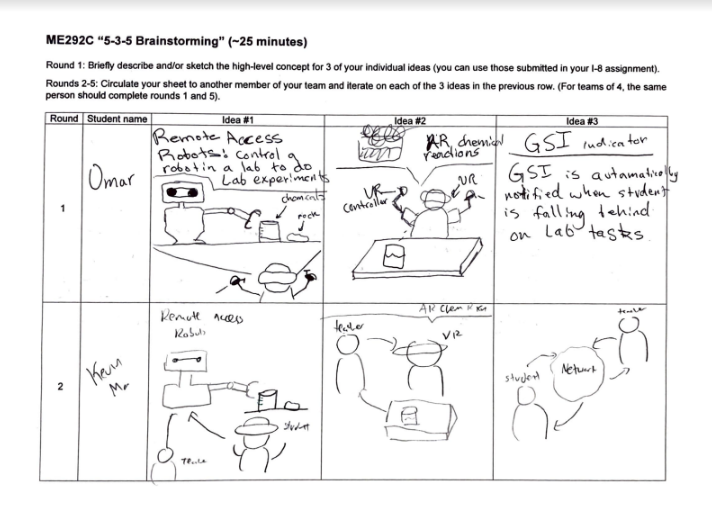 ME292C "5-3-5 Brainstorming" (~25 minutes)
Round 1: Briefly describe and/or sketch the high-level concept for 3 of your individual ideas (you can use those submitted in your I-8 assignment).
Rounds 2-5: Circulate your sheet to another member of your team and iterate on each of the 3 ideas in the previous row. (For teams of 4, the same
person should complete rounds 1 and 5).
Round Student name Idea #1 Idea #2 Idea #3
1
Omar
Remote Access
Robots: Control a
robot in a lab to do
Lab experiments
chemicals
rock
AR, chemical
reactions
VR
Controller
VR
GSI indicator
GSI is automatically
notified when student
is falling behind
on Lab tasks
2
Kevin
Remote access
Robots
student
AR Chem
teacher
VR
teacher
student
Network